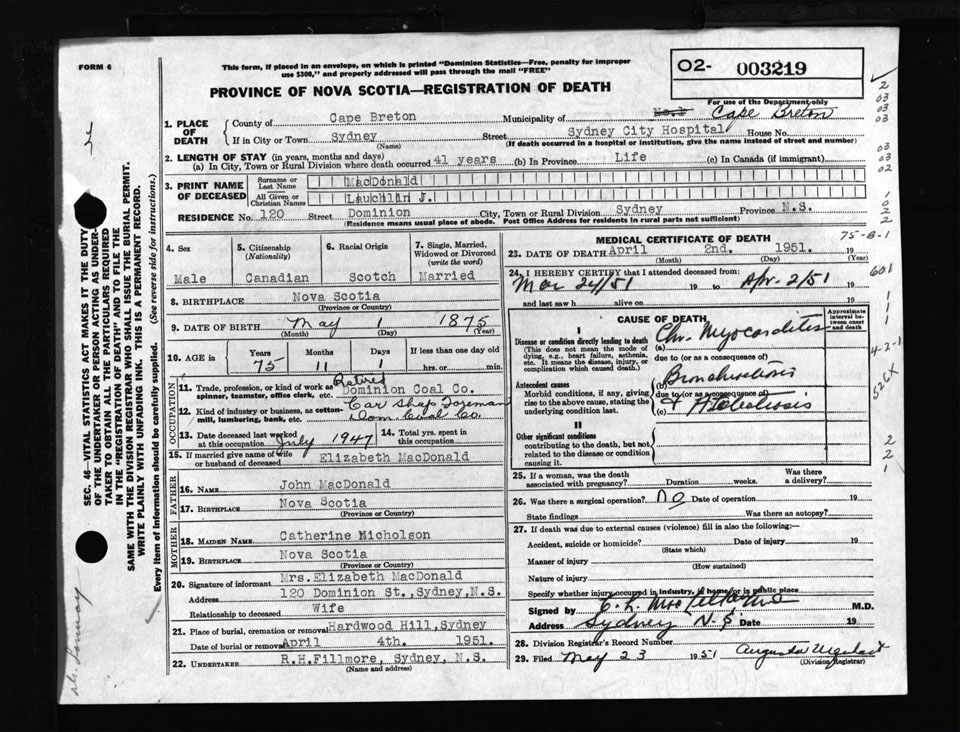 FORM 6
This form, if placed in an envelope, on which is printed "Dominion Statistics—Free, penalty for improper
use $300," and properly addressed will pass through the mail "FREE"
PROVINCE OF NOVA SCOTIA—REGISTRATION OF DEATH
O2- 003219
For use of the Department only
SEC. 46—VITAL STATISTICS ACT MAKES IT THE DUTY
OF THE UNDERTAKER OR PERSON ACTING AS UNDER-
TAKER TO OBTAIN ALL THE PARTICULARS REQUIRED
IN THE "REGISTRATION OF DEATH" AND TO FILE THE
SAME WITH THE DIVISION REGISTRAR WHO SHALL ISSUE THE BURIAL PERMIT.
WRITE PLAINLY WITH UNFADING INK. THIS IS A PERMANENT RECORD.
Every item of Information should be carefully supplied. (See reverse side for instructions.)
1. PLACE OF DEATH
County of Cape Breton Municipality of No.1 Cape Breton
If in City or Town Sydney Street Sydney City Hospital House No.
(Name) (If death occurred in a hospital or institution, give the name instead of street and number)
2. LENGTH OF STAY (in years, months and days)
(a) In City, Town or Rural Division where death occurred 41 years (b) In Province Life (c) In Canada (if immigrant)
3. PRINT NAME OF DECEASED
Surname or Last Name MacDonald
All Given or Christian Names Lauchlin J.
RESIDENCE No. 120 Street Dominion City, Town or Rural Division Sydney Province N.S.
(Residence means usual place of abode. Post Office Address for residents in rural parts not sufficient)
4. Sex
Male
5. Citizenship
(Nationality)
Canadian
6. Racial Origin
Scotch
7. Single, Married,
Widowed or Divorced
(write the word)
Married
8. BIRTHPLACE Nova Scotia
(Province or Country)
9. DATE OF BIRTH May 1 1875
(Month) (Day) (Year)
10. AGE in
Years Months Days If less than one day old
75 11 1 hrs. or min.
OCCUPATION
11. Trade, profession, or kind of work as
spinner, teamster, office clerk, etc.
Retired
Dominion Coal Co.
12. Kind of industry or business, as cotton-
mill, lumbering, bank, etc.
Car Shop Foreman
Dom. Coal Co.
13. Date deceased last worked
at this occupation July 1947
14. Total yrs. spent in
this occupation
15. If married give name of wife
or husband of deceased Elizabeth MacDonald
FATHER
16. NAME John MacDonald
17. BIRTHPLACE Nova Scotia
(Province or Country)
MOTHER
18. MAIDEN NAME Catherine Nicholson
19. BIRTHPLACE Nova Scotia
(Province or Country)
20. Signature of informant Mrs.Elizabeth MacDonald
Address 120 Dominion St.,Sydney,N.S.
Relationship to deceased Wife
21. Place of burial, cremation or removal Hardwood Hill,Sydney
Date of burial or removal April 4th. 1951.
22. UNDERTAKER R.H.Fillmore, Sydney, N.S.
(Name and address)
MEDICAL CERTIFICATE OF DEATH
75-8-1
23. DATE OF DEATH April 2nd. 1951. 19
(Month) (Day) (Year)
24. I HEREBY CERTIFY that I attended deceased from:
Mar 24/51 19 to Apr. 2/51 19
and last saw h alive on 19
CAUSE OF DEATH
Approximate interval between onset and death
I
Disease or condition directly leading to death
(This does not mean the mode of
dying, e.g., heart failure, asthenia,
etc. It means the disease, injury, or
complication which caused death.)
(a) Chr. Myocarditis
due to (or as a consequence of)
Antecedent causes
Morbid conditions, if any, giving
rise to the above cause, stating the
underlying condition last.
(b)
due to (or as a consequence of)
(c)
II
Other significant conditions
contributing to the death, but not
related to the disease or condition
causing it.
25. If a woman, was the death
associated with pregnancy? Duration weeks. Was there
a delivery?
26. Was there a surgical operation? no Date of operation 19
State findings Was there an autopsy?
27. If death was due to external causes (violence) fill in also the following:—
Accident, suicide or homicide? Date of injury 19
(State which)
Manner of injury
(How sustained)
Nature of injury
Specify whether injury occurred in industry, in home or in public place
Signed by M.D.
Address Sydney N.S. Date 19
28. Division Registrar's Record Number
29. Filed May 23 1951 Augusta Urquhart
(Division Registrar)
2
03
03
03
03
03
02
1
0
2
2
601
1
1
1
4-2-1
526X
2
2
1